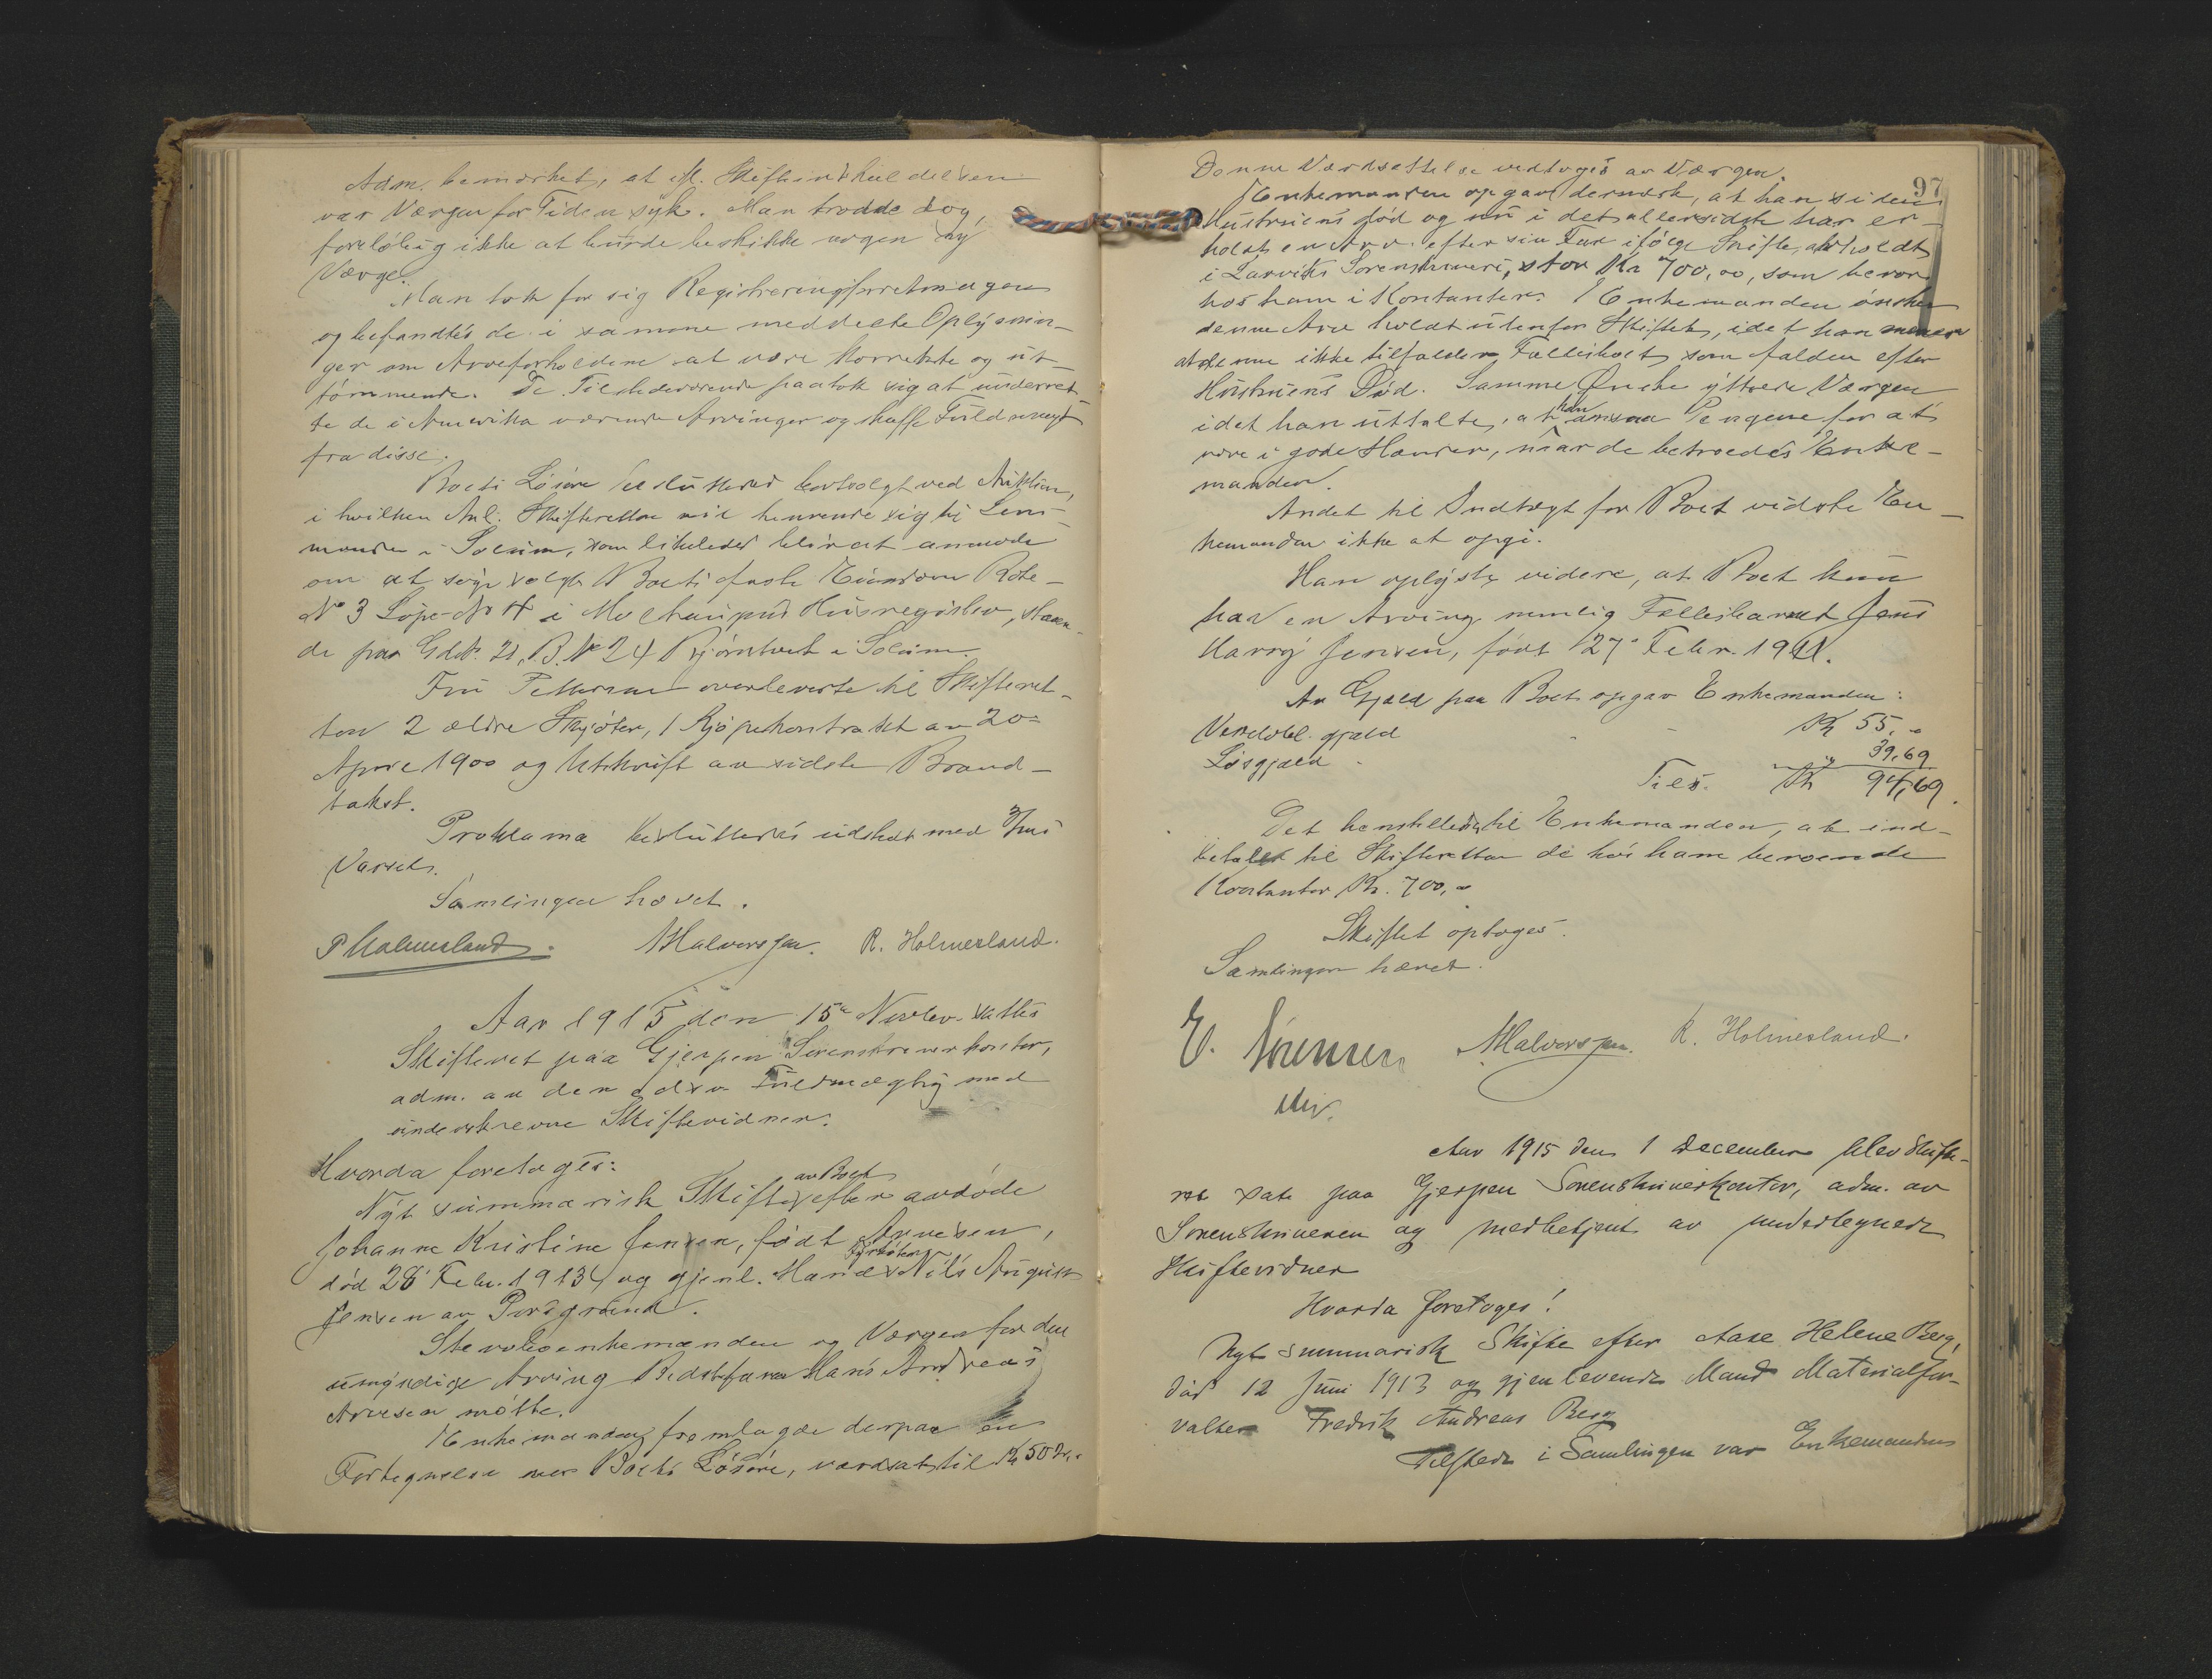 Adm. bemærket, at efl. Skifteindkaldelsen
var Værgen for Tiden syk. Man trodde dog,
foreløbig ikke at burde beskikke nogen ny
Værge.
Man tok for sig Registreringsforretningen
og befandtes de i samme meddelte Oplysnin-
ger om Arveforholdene at være korrekte og ut-
tømmende. De Tilstedeværende paatok sig at underret-
te de i Amerika værende Arvinger og skaffe Fuldmagt
fra disse.
Boets Løsøre besluttedes bortsolgt ved Auktion,
i hvilken Anl. Skifteretten vil henvende sig til Lens-
manden i Solum, som likeledes blir at anmode
om at søge solgt Boets faste Eiendom Rode-
No 3 Løpe-No 4 i Husregister, staaen-
de paa Gdsb. 21, B. No 24 Bjørntvet i Solum.
Fru Pettersen overleverte til Skifteret-
ten 2 ældre Skjøter, 1 Kjøpekontrakt av 20de
April 1900 og Utskrift av sidste Brand-
takst.
Proklama besluttedes utstedt med 3 Mrs
Varsel.
Samlingen hævet.
P Holmesland. Halvorsen. R. Holmesland.
Aar 1915 den 15de Novbr. sattes
Skifteret paa Gjerpen Sorenskriverkontor,
adm. av den eds. Fuldmægtig med
underskrevne Skiftevidner.
Hvorda foretoges:
Nyt summarisk Skifte av Boet efter avdøde
Johanne Kristine Jensen, født Arvesen,
død 28 Febr. 1913 og gjenl. Mand Fyrbøter Nils August
Jensen av Porsgrund.
Stervboenkemanden og Værgen for den
umyndige Arving Bedstefaren Hans Andreas
Arvesen møtte.
Enkemanden fremlagde derpaa en
Fortegnelse over Boets Løsøre, værdsat til Kr 502,-
97
Denne Værdsettelse vedtoges av Værgen.
Enkemanden opgav dernæst, at han siden
Hustruens død og nu i det allersidste har er-
holdt en Arv efter sin Far ifølge Skifte, avholdt
i Larviks Sorenskriveri, stor Kr 700,00, som beror
hos ham i Kontanter. Enkemanden ønsker
denne Arv holdt utenfor Skiftet, idet han mener
at denne ikke tilfalder Fællesboet som falden efter
Hustruens Død. Samme Ønske yttrede Værgen
idet han uttalte, at han ansaa Pengene for at
være i gode Hænder, naar de betroedes Enke-
manden.
Andet til Indtægt for Boet vidste En-
kemanden ikke at opgi.
Han oplyste videre, at Boet kun
har en Arving nemlig Fællesbarnet Jens
Harry Jensen, født 27de Febr. 1911.
Av Gjæld paa Boet opgav Enkemanden:
Vexelobl. gjæld - - Kr 55,00
Løsgjæld - - " 39,69
Tils. Kr 94,69.
Det henstilledes til Enkemanden, at ind-
betale til Skifteretten de hos ham beroende
Kontanter Kr. 700,00
Skiftet optoges.
Samlingen hævet.
E. Sørensen Halvorsen. R. Holmesland.
Aar 1915 den 1 December blev Skifte-
ret sat paa Gjerpen Sorenskriverkontor, adm. av
Sorenskriveren og medbetjent av undertegnede
Skiftevidner
Hvorda foretoges!
Nyt summarisk Skifte efter Aase Helene Berg,
død 12 Juni 1913 og gjenlevende Mand Materialfor-
valter Fredrik Andreas Berg
Tilstede i Samlingen var Enkemanden